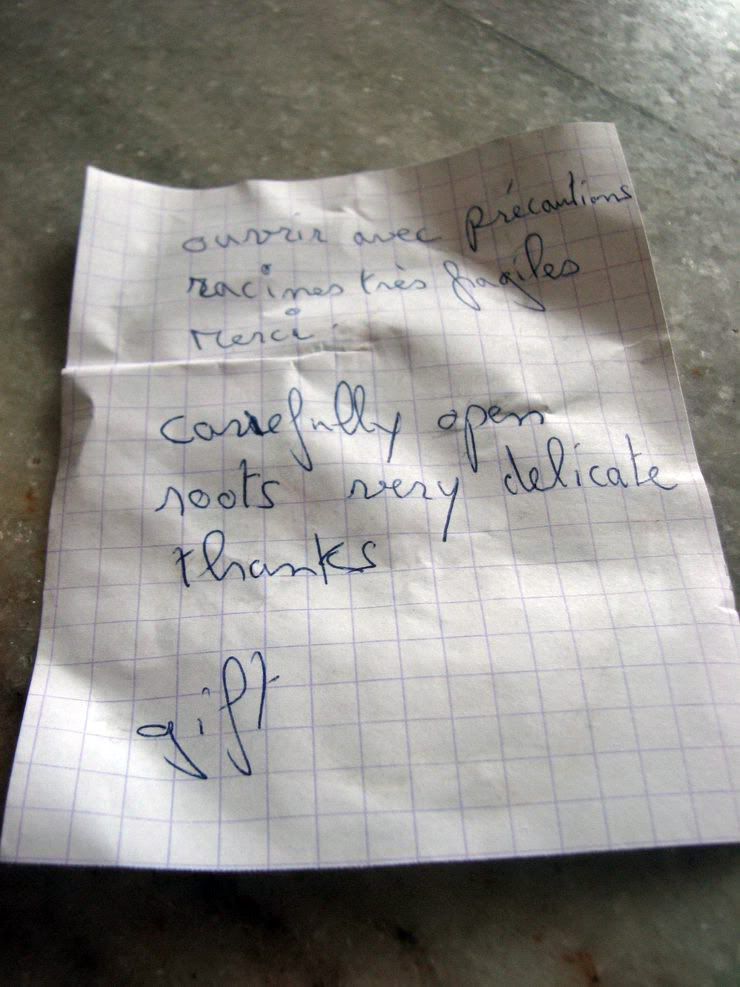 ouvrir avec précautions
racines très fragiles
merci.
carefully open
roots very delicate
thanks
gift